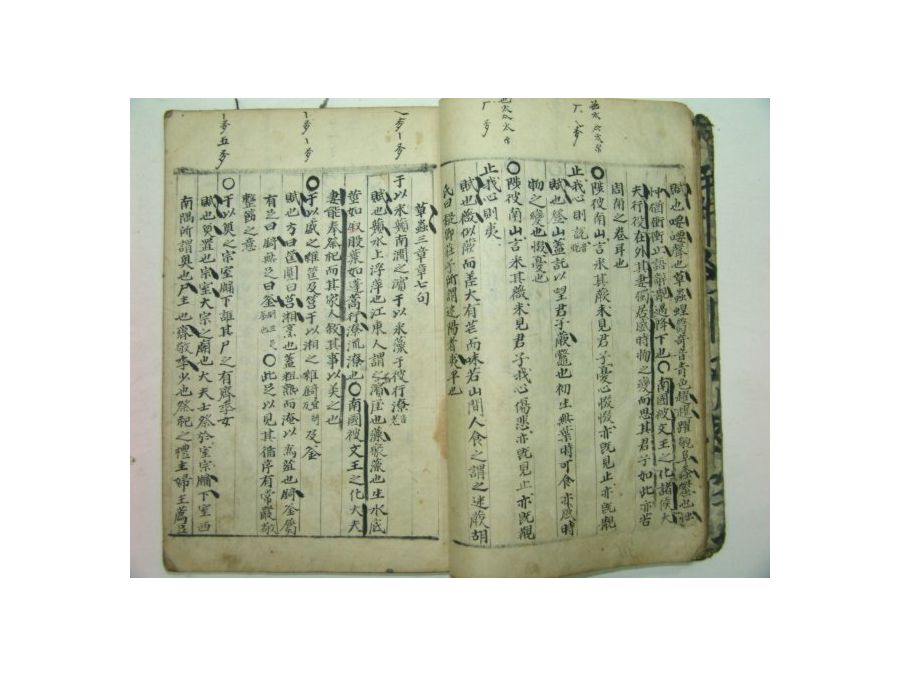 賦也喓喓聲也草蟲蝗屬奇音青色趯趯躍貌阜螽蠜也忡
忡猶衝衝也止語辭覯遇降下也○南國被文王之化諸侯大
夫行役在外其妻獨居感時物之變而思其君子如此亦若
周南之卷耳也
○陟彼南山言采其蕨未見君子憂心惙惙亦旣見止亦旣覯
止我心則說
賦也登山蓋託以望君子蕨鼈也初生無葉時可食亦感時
物之變也惙憂也
○陟彼南山言采其薇未見君子我心傷悲亦旣見止亦旣覯
止我心則夷
賦也薇似蕨而差大有芒而味苦山間人食之謂之迷蕨胡
氏曰疑卽莊子所謂迷陽者夷平也
草蟲三章章七句
于以采蘋南澗之濱于以采藻于彼行潦
賦也蘋水上浮萍也江東人謂之濱厓也藻聚藻也生水底
莖如釵股葉如蓬蒿行潦流潦也○南國被文王之化大夫
妻能奉祭祀而其家人敘其事以美之也
○于以盛之維筐及筥于以湘之維錡及釜
賦也方曰筐圓曰筥湘烹也蓋粗熟而淹以爲菹也錡釜屬
有足曰錡無足曰釜○此足以見其循序有常嚴敬
整飭之意
○于以奠之宗室牖下誰其尸之有齊季女
賦也奠置也宗室大宗之廟也大夫士祭於宗室牖下室西
南隅所謂奧也尸主也齊敬季少也祭祀之禮主婦主薦豆